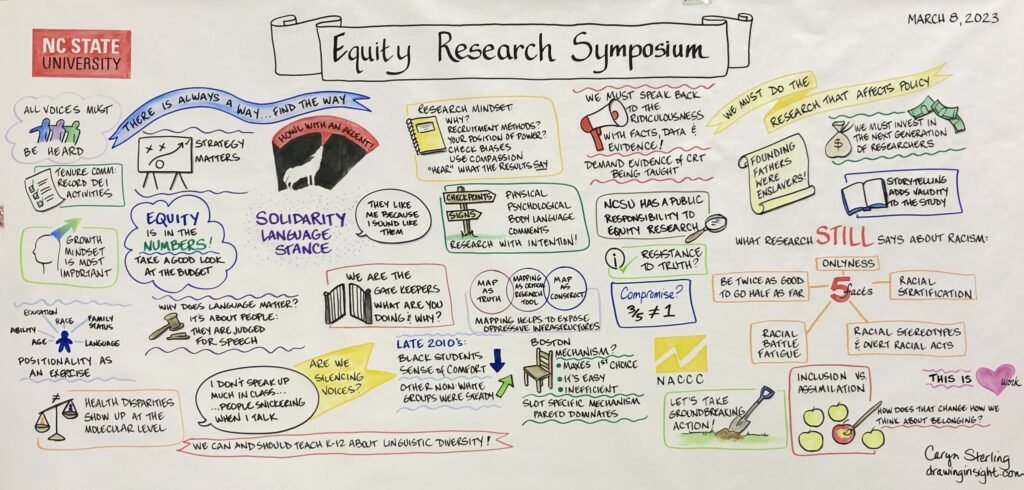 MARCH 8, 2023
NC STATE
UNIVERSITY
Equity Research Symposium
ALL VOICES MUST
BE HEARD
THERE IS ALWAYS A WAY...FIND THE WAY
STRATEGY
MATTERS
HOWL WITH AN ACCENT!
RESEARCH MINDSET
WHY?
RECRUITMENT METHODS?
YOUR POSITION OF POWER?
CHECK BIASES
USE COMPASSION
"HEAR" WHAT THE RESULTS SAY
WE MUST SPEAK BACK
TO THE
RIDICULOUSNESS
WITH FACTS, DATA &
EVIDENCE!
DEMAND EVIDENCE of CRT
BEING TAUGHT
WE MUST DO THE
RESEARCH THAT AFFECTS POLICY
FOUNDING
FATHERS
WERE
ENSLAVERS!
$
WE MUST INVEST IN
THE NEXT GENERATION
OF RESEARCHERS
STORYTELLING
ADDS VALIDITY
TO THE STUDY
TENURE COMM:
RECORD DEI
ACTIVITIES
GROWTH
MINDSET
IS MOST
IMPORTANT
EQUITY
IS IN THE
NUMBERS!
TAKE A GOOD LOOK
AT THE BUDGET
SOLIDARITY
LANGUAGE
STANCE
THEY LIKE
ME BECAUSE
I SOUND LIKE
THEM
CHECKPOINTS
SIGNS
PHYSICAL
PSYCHOLOGICAL
BODY LANGUAGE
COMMENTS
RESEARCH WITH INTENTION!
NCSU HAS A PUBLIC
RESPONSIBILITY TO
EQUITY RESEARCH
RESISTANCE
TO TRUTH?
WHAT RESEARCH STILL SAYS ABOUT RACISM:
ONLYNESS
BE TWICE AS GOOD
TO GO HALF AS FAR
5
facts
RACIAL
STRATIFICATION
RACIAL
BATTLE
FATIGUE
RACIAL STEREOTYPES
& OVERT RACIAL ACTS
EDUCATION
RACE
FAMILY
STATUS
ABILITY
AGE
LANGUAGE
POSITIONALITY AS
AN EXERCISE
WHY DOES LANGUAGE MATTER?
IT'S ABOUT PEOPLE:
THEY ARE JUDGED
FOR SPEECH
WE ARE THE
GATE KEEPERS
WHAT ARE YOU
DOING & WHY?
MAP
AS
TRUTH
MAPPING
AS CRITICAL
RESEARCH
TOOL
MAP
AS
CONSTRUCT
MAPPING HELPS TO EXPOSE
OPPRESSIVE INFRASTRUCTURES
Compromise?
3/5 ≠ 1
HEALTH DISPARITIES
SHOW UP AT THE
MOLECULAR LEVEL
I DON'T SPEAK UP
MUCH IN CLASS...
...PEOPLE SNICKERING
WHEN I TALK
ARE WE
SILENCING
VOICES?
LATE 2010'S:
BLACK STUDENTS
SENSE OF COMFORT
OTHER NON WHITE
GROUPS WERE STEADY
BOSTON
MECHANISM?
• MAKES 1ST CHOICE
• IT'S EASY
• INEFFICIENT
SLOT SPECIFIC MECHANISM
PARETO DOMINATES
NACCC
LET'S TAKE
GROUNDBREAKING
ACTION!
INCLUSION VS.
ASSIMILATION
HOW DOES THAT CHANGE HOW WE
THINK ABOUT BELONGING?
THIS IS
work
WE CAN AND SHOULD TEACH K-12 ABOUT LINGUISTIC DIVERSITY!
Caryn Sterling
drawinginsight.com